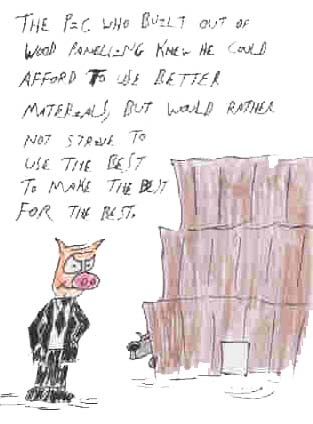 THE PIG WHO BUILT OUT OF
WOOD PANELLING KNEW HE COULD
AFFORD TO USE BETTER
MATERIALS, BUT WOULD RATHER
NOT STRIVE TO
USE THE BEST
TO MAKE THE BEST
FOR THE BEST.